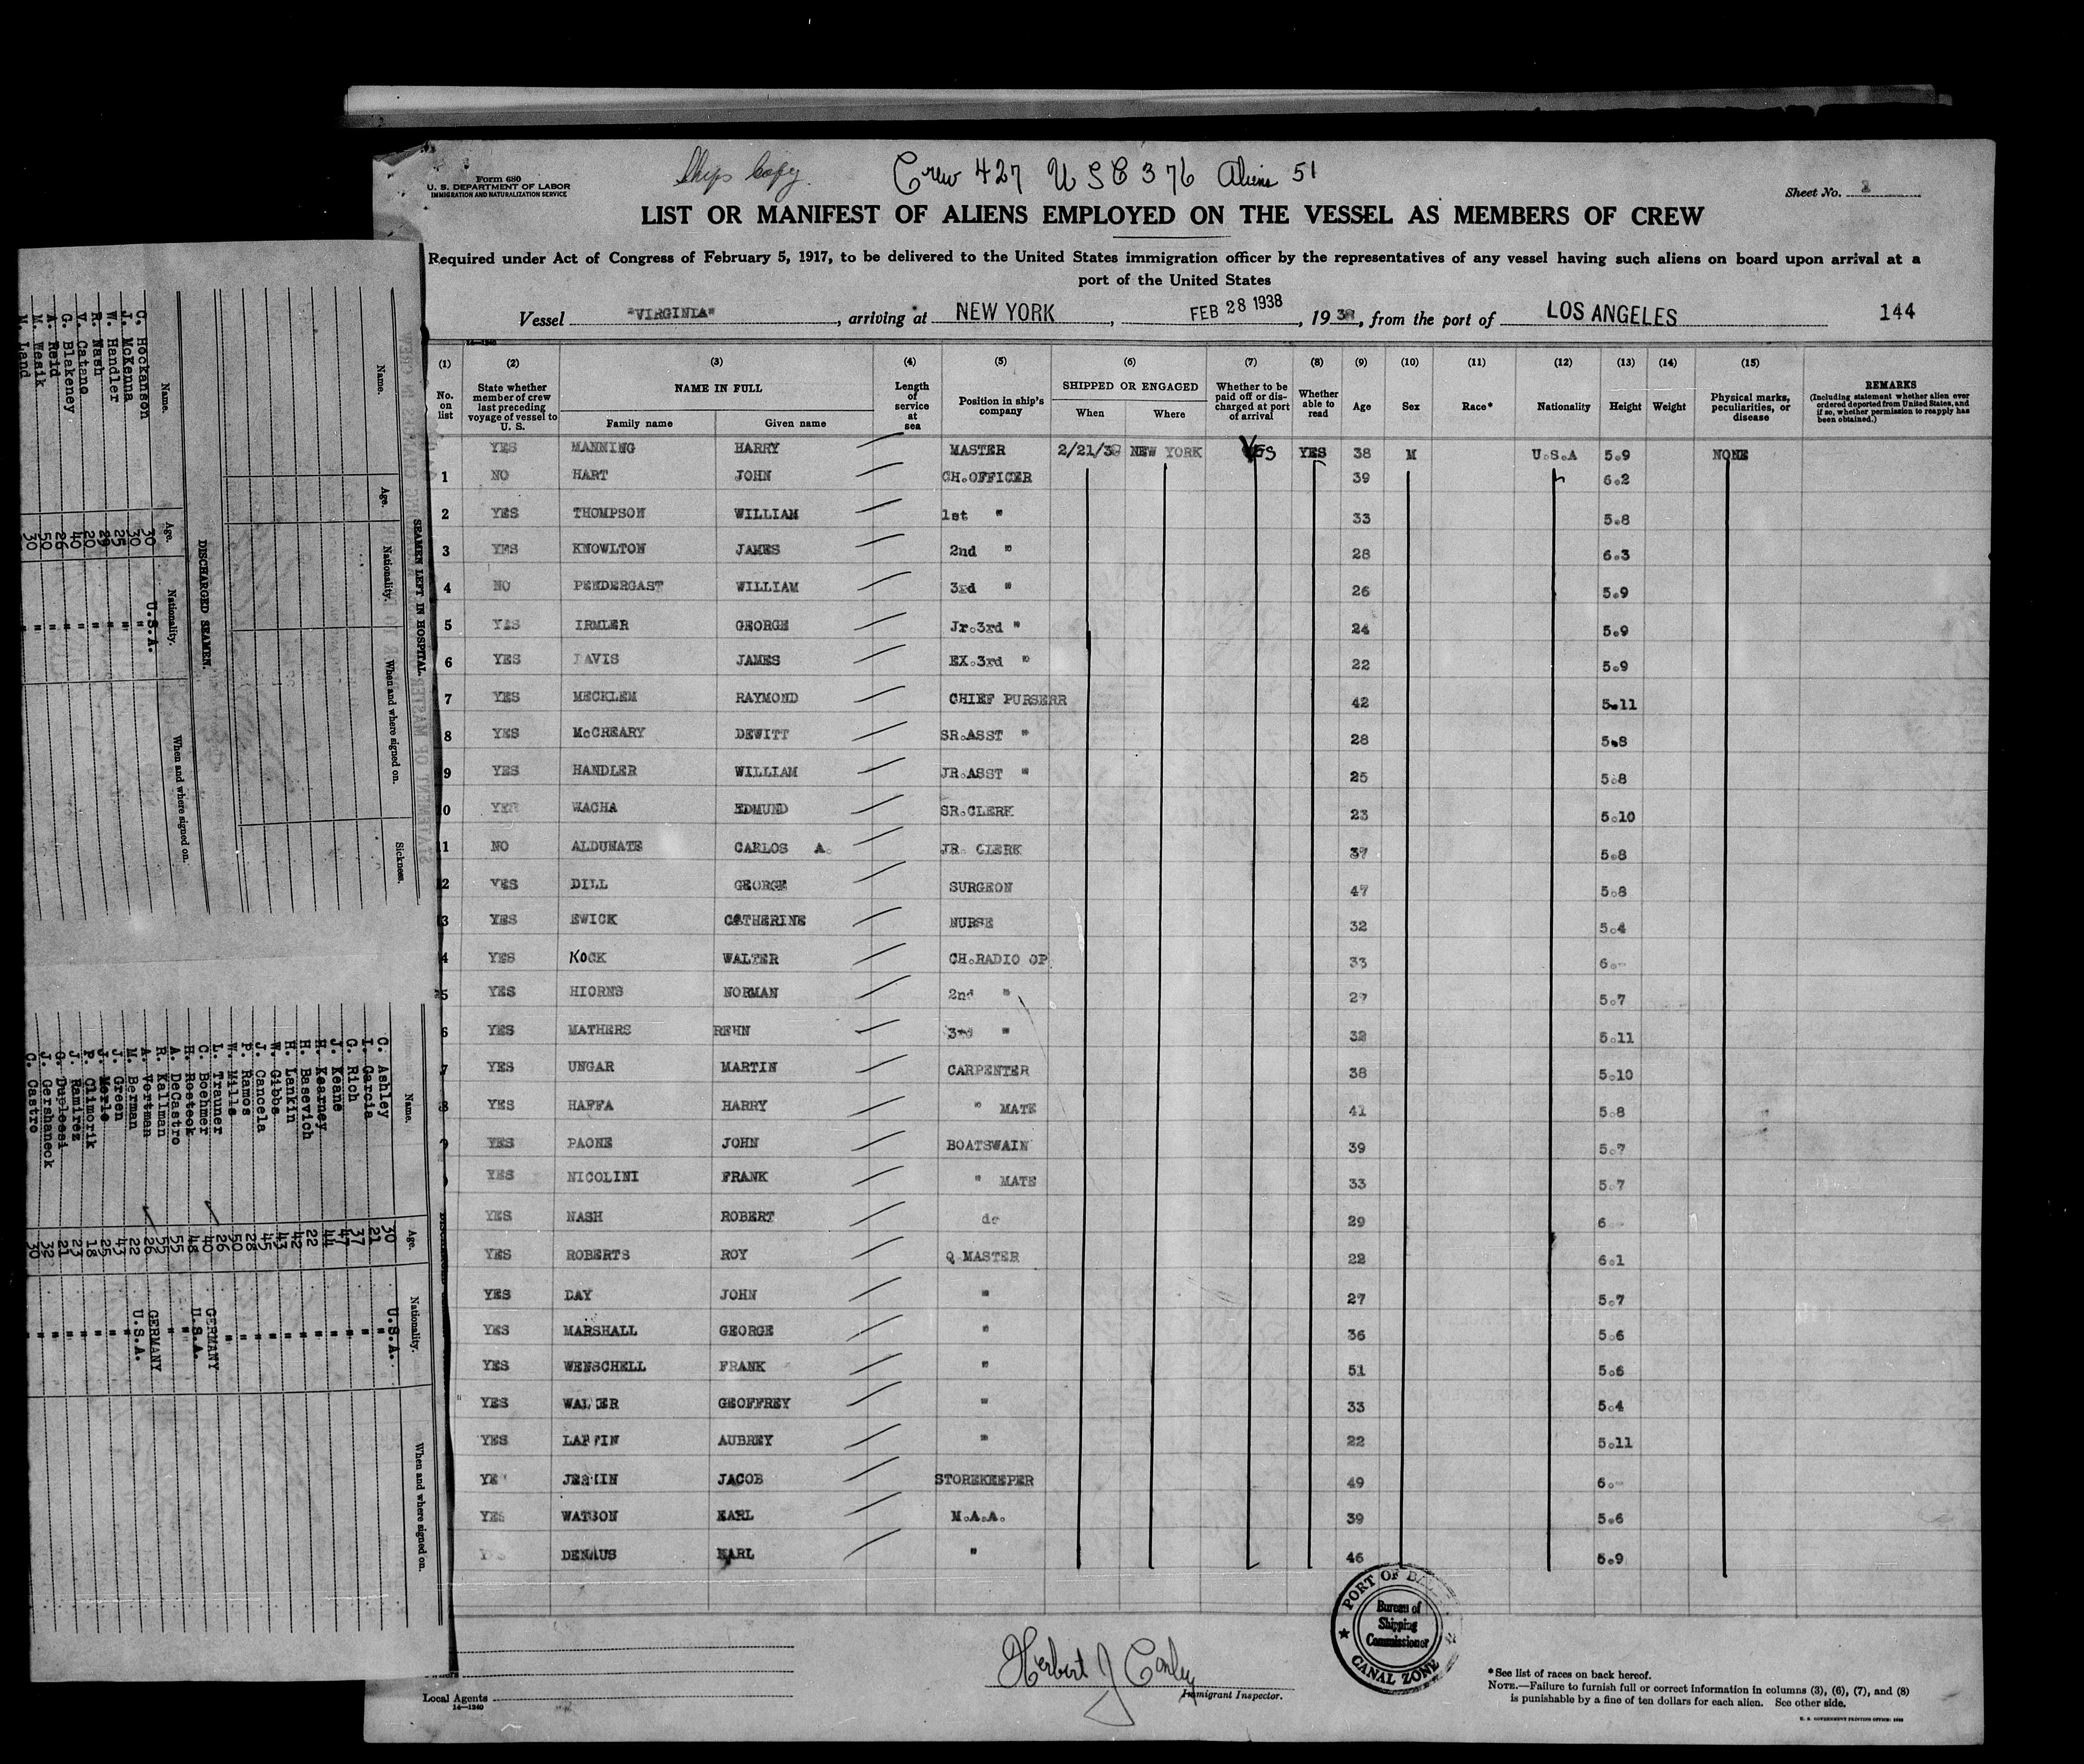 Form 680
U. S. DEPARTMENT OF LABOR
IMMIGRATION AND NATURALIZATION SERVICE
Ships Copy.
Crew 427 USC 376 Aliens 51
Sheet No.
LIST OR MANIFEST OF ALIENS EMPLOYED ON THE VESSEL AS MEMBERS OF CREW
Required under Act of Congress of February 5, 1917, to be delivered to the United States immigration officer by the representatives of any vessel having such aliens on board upon arrival at a
port of the United States
Vessel "VIRGINIA", arriving at NEW YORK, FEB 28 1938, 1938, from the port of LOS ANGELES 144
14—1240
(1) (2) (3) (4) (5) (6) (7) (8) (9) (10) (11) (12) (13) (14) (15)
No. on list
State whether member of crew last preceding voyage of vessel to U. S.
NAME IN FULL
Family name Given name
Length of service at sea
Position in ship's company
SHIPPED OR ENGAGED
When Where
Whether to be paid off or discharged at port of arrival
Whether able to read
Age
Sex
Race*
Nationality
Height
Weight
Physical marks, peculiarities, or disease
REMARKS
(Including statement whether alien ever ordered deported from United States, and if so, whether permission to reapply has been obtained.)
YES MANNING HARRY MASTER 2/21/38 NEW YORK YES YES 38 M U.S.A 5.9 NONE
1 NO HART JOHN CH.OFFICER 39 6.2
2 YES THOMPSON WILLIAM 1st " 33 5.8
3 YES KNOWLTON JAMES 2nd " 28 6.3
4 NO PENDERGAST WILLIAM 3rd " 26 5.9
5 YES IRMLER GEORGE Jr.3rd " 24 5.9
6 YES DAVIS JAMES EX.3rd " 22 5.9
7 YES MECKLEM RAYMOND CHIEF PURSERR 42 5.11
8 YES McCREARY DEWITT SR.ASST " 28 5.8
9 YES HANDLER WILLIAM JR.ASST " 25 5.8
0 YES WACHA EDMUND SR.CLERK 23 5.10
1 NO ALDUNATE CARLOS A. JR. CLERK 37 5.8
2 YES DILL GEORGE SURGEON 47 5.8
3 YES EWICK CATHERINE NURSE 32 5.4
4 YES KOCK WALTER CH.RADIO OP 33 6.-
5 YES HIORNS NORMAN 2nd " 27 5.7
6 YES MATHERS REHN 3rd " 32 5.11
7 YES UNGAR MARTIN CARPENTER 38 5.10
8 YES HAFFA HARRY " MATE 41 5.8
9 YES PAONE JOHN BOATSWAIN 39 5.7
YES NICOLINI FRANK " MATE 33 5.7
YES NASH ROBERT do 29 6
YES ROBERTS ROY Q MASTER 22 6.1
YES DAY JOHN " 27 5.7
YES MARSHALL GEORGE " 36 5.6
YES WENSCHELL FRANK " 51 5.6
YES GEOFFREY " 33 5.4
YES AUBREY " 22 5.11
JACOB STOREKEEPER 49 6.-
YES WATSON KARL M.A.A. 39 5.6
DENAUS KARL " 46 5.9
PORT OF
Bureau of
Shipping
Commissioner
CANAL ZONE
Herbert J Conley
Immigrant Inspector.
Local Agents
14—1240
*See list of races on back hereof.
NOTE.—Failure to furnish full or correct information in columns (3), (6), (7), and (8)
is punishable by a fine of ten dollars for each alien. See other side.
SEAMEN LEFT IN HOSPITAL
Name. Age. Nationality. When and where signed on. Sickness.
DISCHARGED SEAMEN.
Name. Age. Nationality. When and where signed on.
C. Hockanson 30 U.S.A.
J. McKenna 30 "
W. Handler 25 "
R. Nash 29 "
V. Catano 20 "
G. Blakeney 40 "
A. Reid 26 "
M. Wesik 50 "
Land 30 "
Name. Age. Nationality. When and where signed on.
C. Ashley 30 U.S.A.
I. Garcia 21 "
G. Rich 37 "
J. Keane 47 "
H. Kearney 44 "
H. Basevich 22 "
H. Lankin 42 "
W. Gibbs 43 "
J. Cancela 45 "
P. Ramos 28 "
W. Mills 50 "
L. Trauner 26 GERMANY
C. Boehmer 40 U.S.A.
H. Rosteck 48 "
A. DeCastro 55 "
R. Kallman 55
A. Vortman 26 GERMANY
M. Berman 22 U.S.A.
J. Green 43 "
J. Merle 25 "
P. Climorik 18 "
J. Ramirez 23 "
G. Duplessi 21 "
J. Gershaneck 32 "
C. Castro 30 "